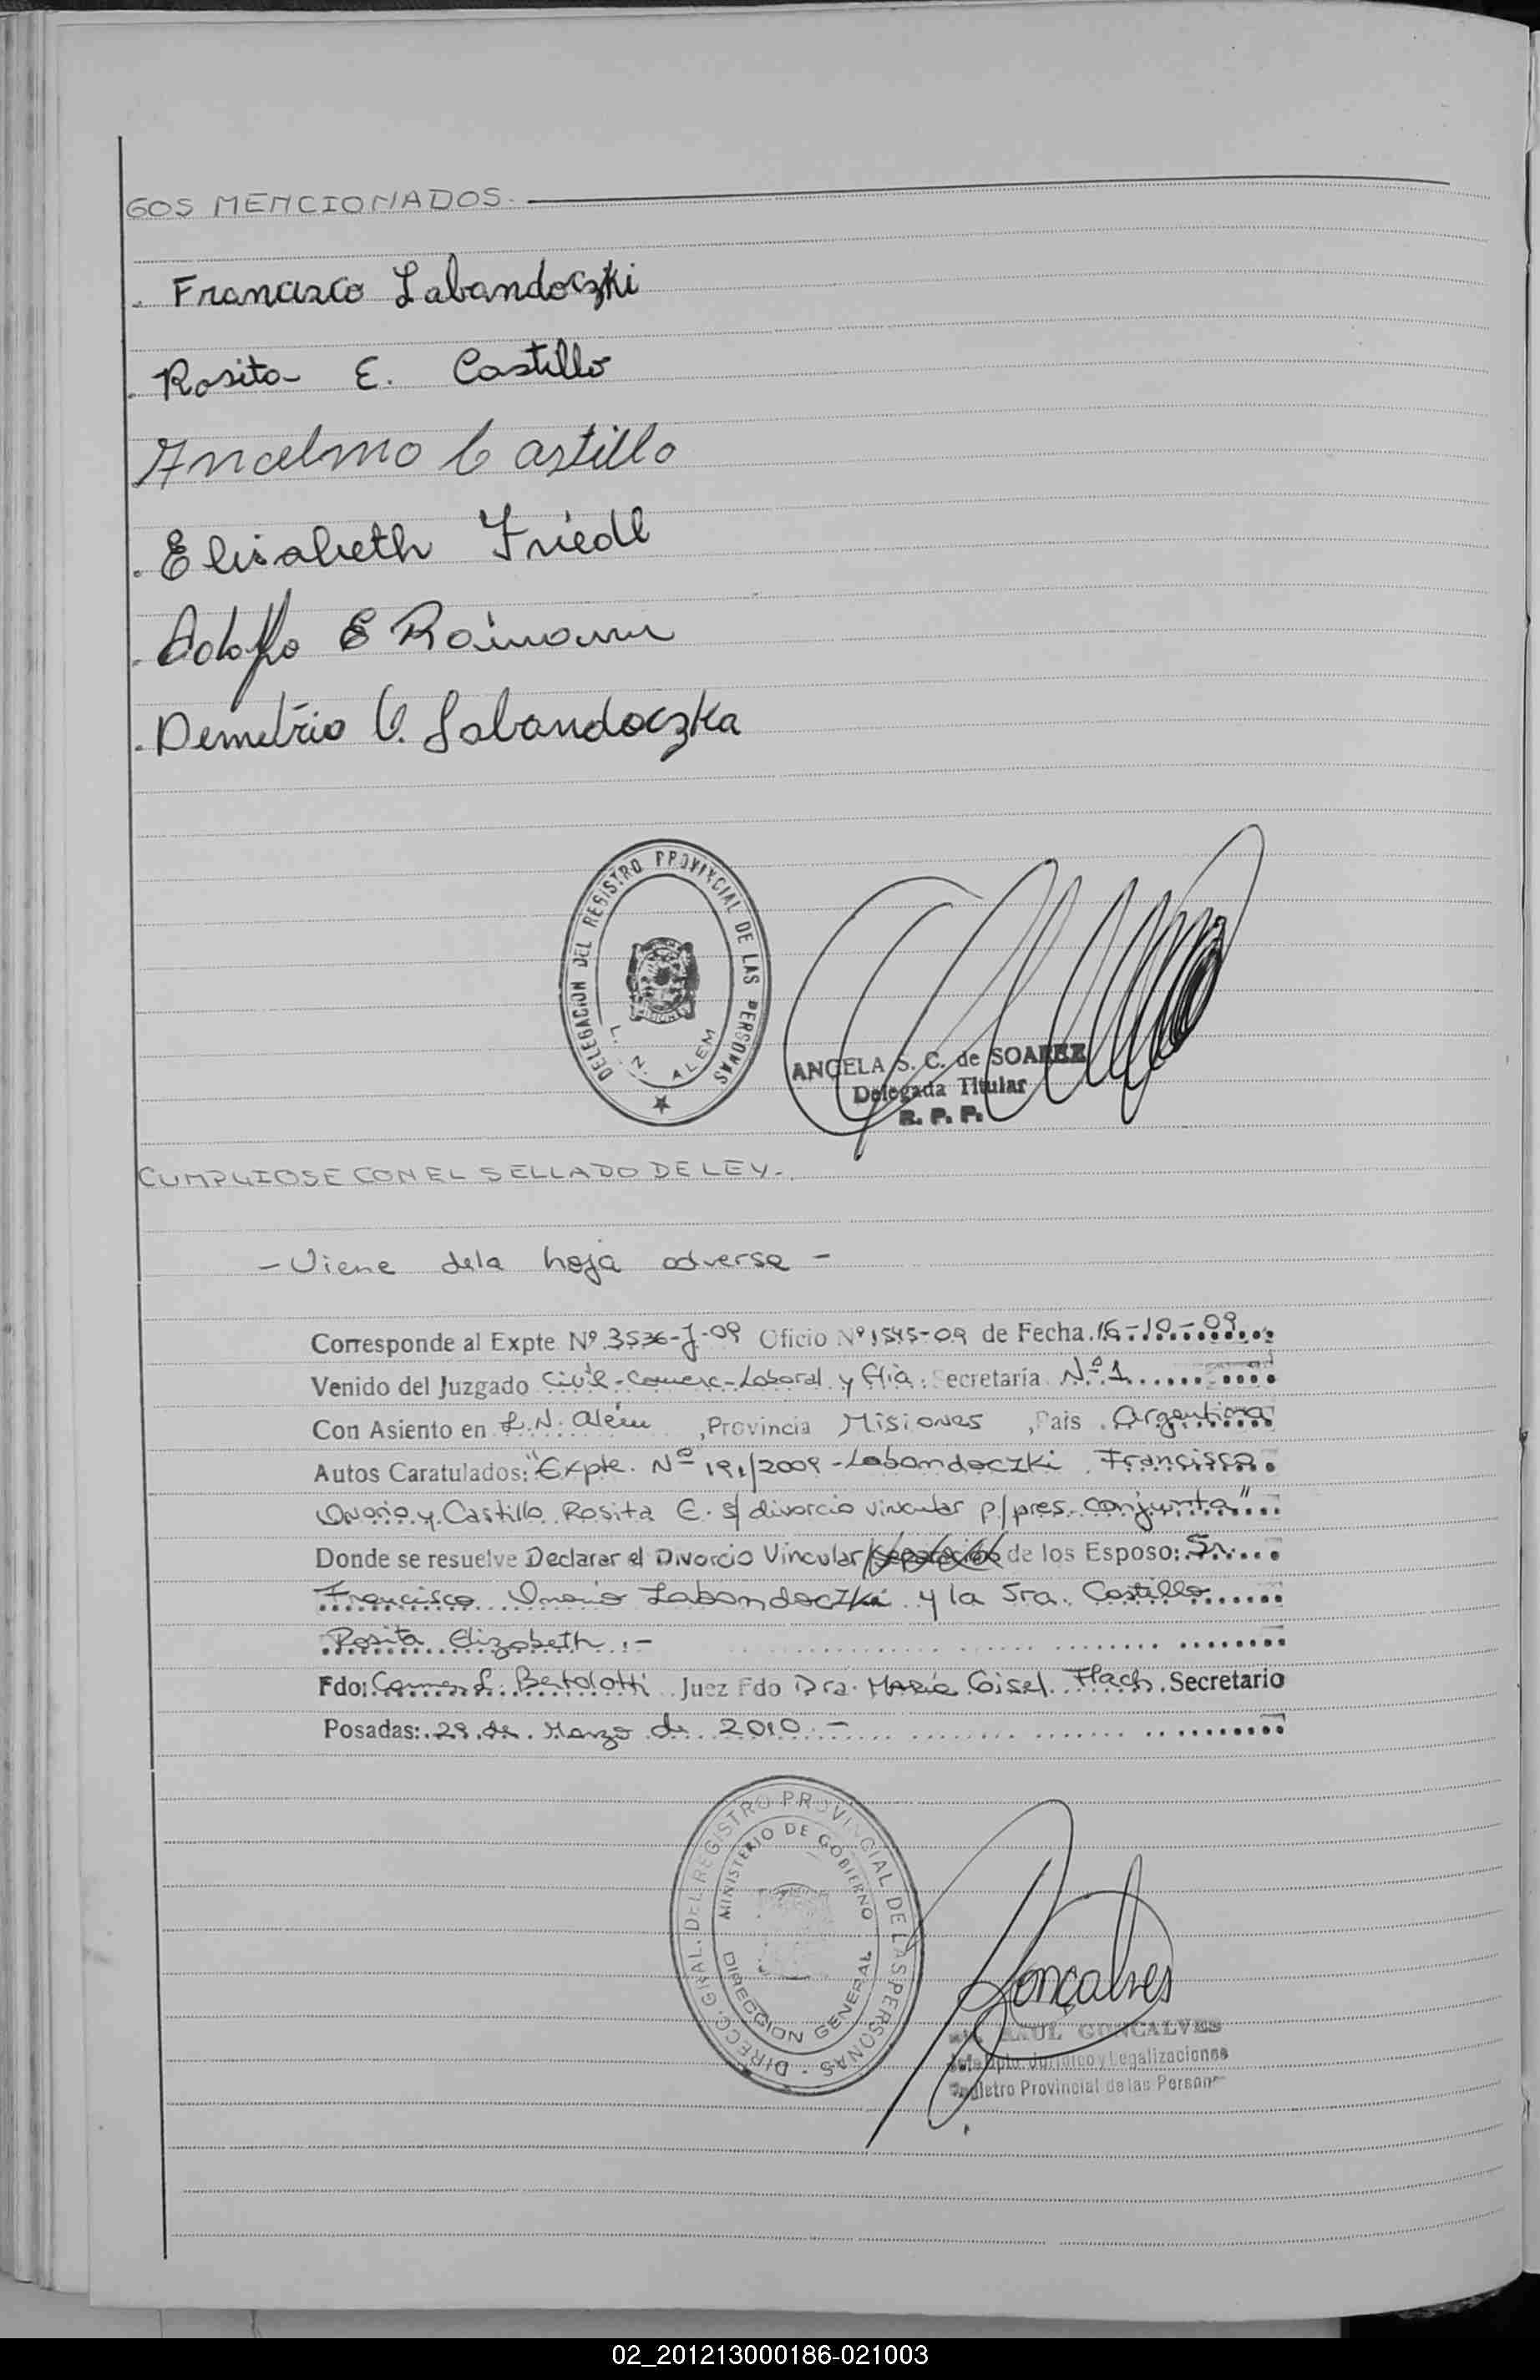 GOS MENCIONADOS.
Francisco Labandoczki
Rosita E. Castillo
Ancelmo Castillo
Elisabeth Friedl
Adolfo E Raimann
Demetrio V. Labandoczka
DELEGACION DEL REGISTRO PROVINCIAL DE LAS PERSONAS
L. N. ALEM
ANGELA S. C. de SOAREZ
Delegada Titular
R. P. P.
CUMPLIOSE CON EL SELLADO DE LEY.
- Viene dela hoja adversa -
Corresponde al Expte Nº 3536-J-09 Oficio Nº 1545-09 de Fecha 16-10-09
Venido del Juzgado Civil-Comerc-Laboral y flia. Secretaría Nº 1
Con Asiento en L.N. Alem, Provincia Misiones, Pais Argentina
Autos Caratulados: "Expte. Nº 191/2009 - Labandoczki Francisco
Onorio y Castillo Rosita E. s/ divorcio vincular p/pres. conjunta"
Donde se resuelve Declarar el Divorcio Vincular de los Esposo: Sr.
Francisco Onorio Labandoczki y la Sra. Castillo
Rosita Elizabeth.-
Fdo: Carmen L. Bertolotti Juez Fdo Dra. María Gisel Flach Secretario
Posadas: 29 de Marzo de 2010.-
DIRECC. GRAL. DEL REGISTRO PROVINCIAL DE LAS PERSONAS
MINISTERIO DE GOBIERNO
DIRECCION GENERAL
Goncalves
RAUL GONCALVES
Jefe Dpto. Jurídico y Legalizaciones
Registro Provincial de las Personas
02_201213000186-021003